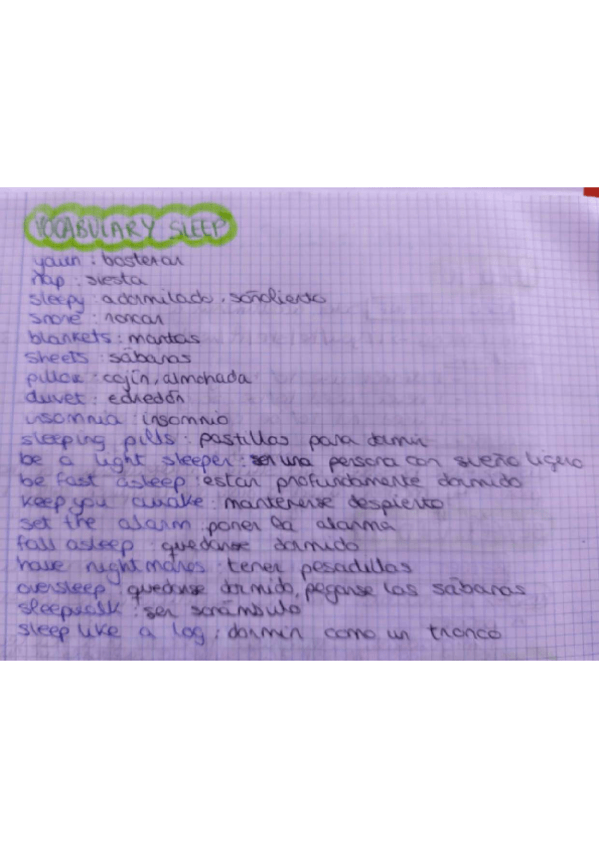 VOCABULARY SLEEP
yawn : bostezar
nap : siesta
sleepy : adormilado, soñoliento
snore : roncar
blankets : mantas
sheets : sábanas
pillow : cojín, almohada
duvet : edredón
insomnia : insomnio
sleeping pills : pastillas para dormir
be a light sleeper : ser una persona con sueño ligero
be fast asleep : estar profundamente dormido
keep you awake : mantenerse despierto
set the alarm : poner la alarma
fall asleep : quedarse dormido
have nightmares : tener pesadillas
oversleep : quedarse dormido, pegarse las sábanas
sleepwalk : ser sonámbulo
sleep like a log : dormir como un tronco